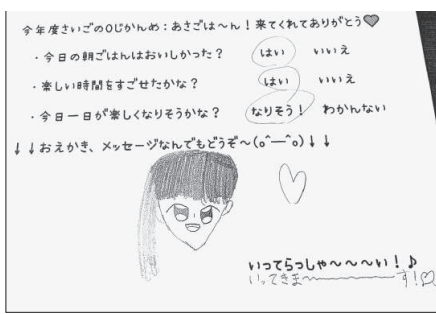 今年度さいごの0じかんめ：あさごは〜ん！来てくれてありがとう♥
・今日の朝ごはんはおいしかった？ はい いいえ
・楽しい時間をすごせたかな？ はい いいえ
・今日一日が楽しくなりそうかな？ なりそう！ わかんない
↓↓おえかき、メッセージなんでもどうぞ〜(o^―^o)↓↓
いってらっしゃ〜〜〜い！♪
いってきま〜〜〜す！♡